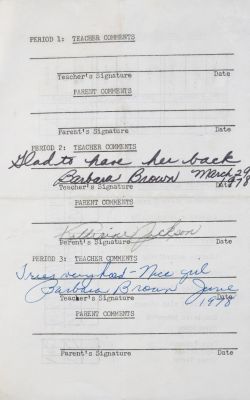 PERIOD 1: TEACHER COMMENTS
Teacher's Signature Date
PARENT COMMENTS
Parent's Signature Date
PERIOD 2: TEACHER COMMENTS
Glad to have her back
Barbara Brown March 29
1978
Teacher's Signature Date
PARENT COMMENTS
Katherine Jackson
Parent's Signature Date
PERIOD 3: TEACHER COMMENTS
Tries very hard - Nice girl
Barbara Brown June
1978
Teacher's Signature Date
PARENT COMMENTS
Parent's Signature Date